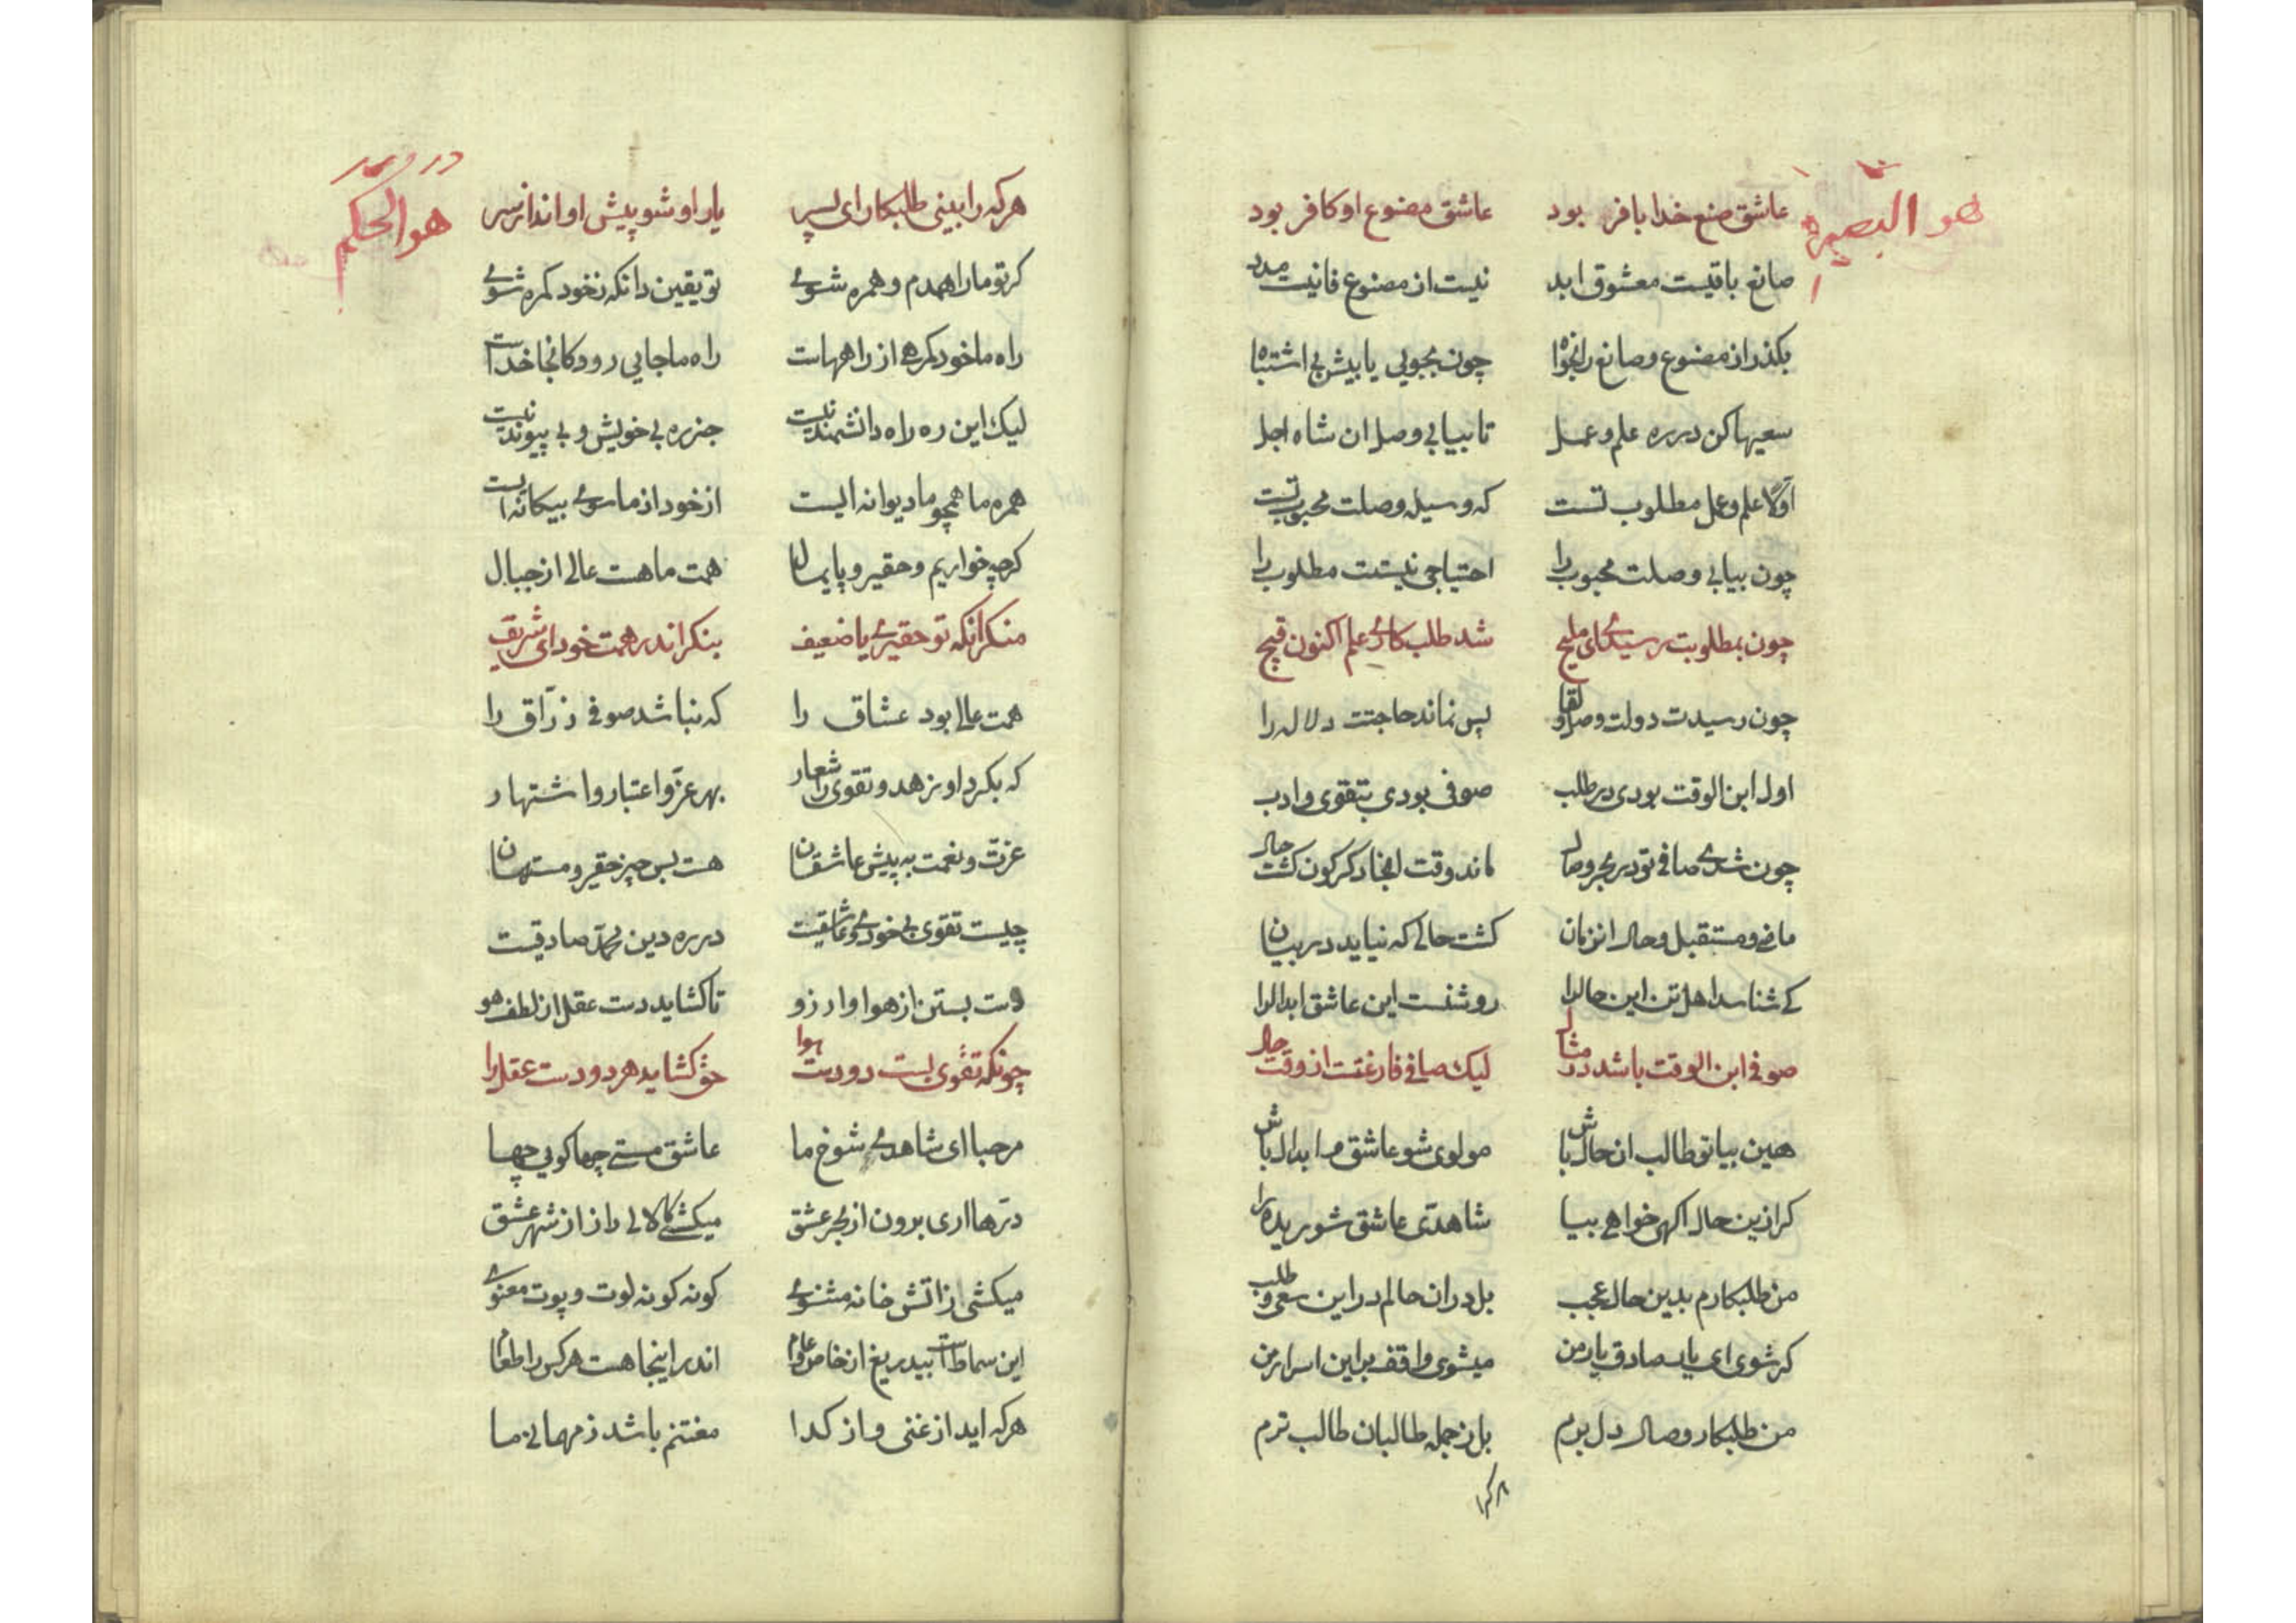 هو البصیر
عاشق صنع خدا بافر بود عاشق مصنوع او کافر بود
صانع باقیست معشوق ابد نیست از مصنوع فانیت مدد
بکذر از مصنوع و صانع را بجو چون بجویی یابیش بی اشتباه
سعیها کن در ره علم و عمل تا بیابی وصل ان شاه اجل
اولا علم و عمل مطلوب تست که وسیله وصلت محبوب تست
چون بیابی وصلت محبوب را احتیاجی نیستت مطلوب را
چون بمطلوبت رسیدی ای ملیح شد طلب کاری علم اکنون قبیح
چون رسیدت دولت وصل و لقا پس نماند حاجتت دلاله را
اول ابن الوقت بودی در طلب صوفی بودی بتقوی و ادب
چون شدی صافی تو در بحر وصال ماند وقت انجا دکرکون کشت حال
ماضی و مستقبل و حال از زمان کشت حالی که نیاید در بیان
کی شناسد اهل تن این حال را روشنست این عاشق ابدال را
صوفی ابن الوقت باشد در مثال لیک صافی فارغست از وقت حال
هین بیا تو طالب ان حال باش مولوی شو عاشق ابدال باش
کر ازین حال اکهی خواهی بیا شاهدی عاشق شوریده را
من طلبکارم بدین حال عجب بل دران حالم در این سعی و طلب
کر شوی ای یار صادق یار من میشوی واقف براین اسرار من
من طلبکار وصال دلبرم بل ز جمله طالبان طالب ترم
هرکه را
هو الحکیم
هرکه را بینی طلبکار ای پسر یار او شو پیش او انداز سر
کر تو ما را همدم و همره شوی تو یقین دانکه زخود کمره شوی
راه ما خود کمرهی از راههاست راه ما جایی رود کانجا خداست
لیک این ره راه دانشمند نیست جز ره بی خویش و بی پیوند نیست
همره ما همچو ما دیوانه ایست از خود از ماسوی بیکانه ایست
کرچه خواریم و حقیر و پایمال همت ما هست عالی از جبال
منکر انکه تو حقیری یا ضعیف بنکر اندر همت خود ای شریف
همت عالی بود عشاق را که نباشد صوفی زراق را
که بکرد او زهد و تقوی را شعار بهر عز و اعتبار و اشتهار
عزت و نعمت به پیش عاشقان هست بس چیز حقیر و مستهان
چیست تقوی بی خودی و عاشقیست در ره دین محمد صادقیست
دست بستن از هوا و ارزو تا کشاید دست عقل از لطف هو
چونکه تقوی بست دو دست هوا حق کشاید هر دو دست عقل را
مرحبا ای شاهدی شوخ ما عاشق مستی چها کویی چها
درها اری برون از بحر عشق میکشی کالای راز از شهر عشق
میکشی ز اتش خانه مثنوی کونه کونه لوت و پوت معنوی
این سماطست بیدریغ از خاص و عام اندر اینجا هست هرکس را طعام
هرکه اید از غنی و از کدا مغتنم باشد ز مهمانی ما